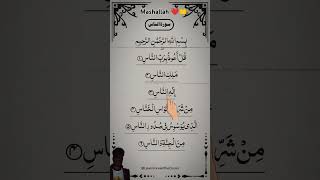 Mashallah ❤️
سورة الناس
بِسْمِ اللهِ الرَّحْمٰنِ الرَّحِيْمِ
قُلْ أَعُوْذُ بِرَبِّ النَّاسِ ①
مَلِكِ النَّاسِ ②
إِلٰهِ النَّاسِ ③
مِنْ شَرِّ الْوَسْوَاسِ الْخَنَّاسِ ④
الَّذِي يُوَسْوِسُ فِي صُدُوْرِ النَّاسِ ⑤
مِنَ الْجِنَّةِ وَالنَّاسِ ⑥